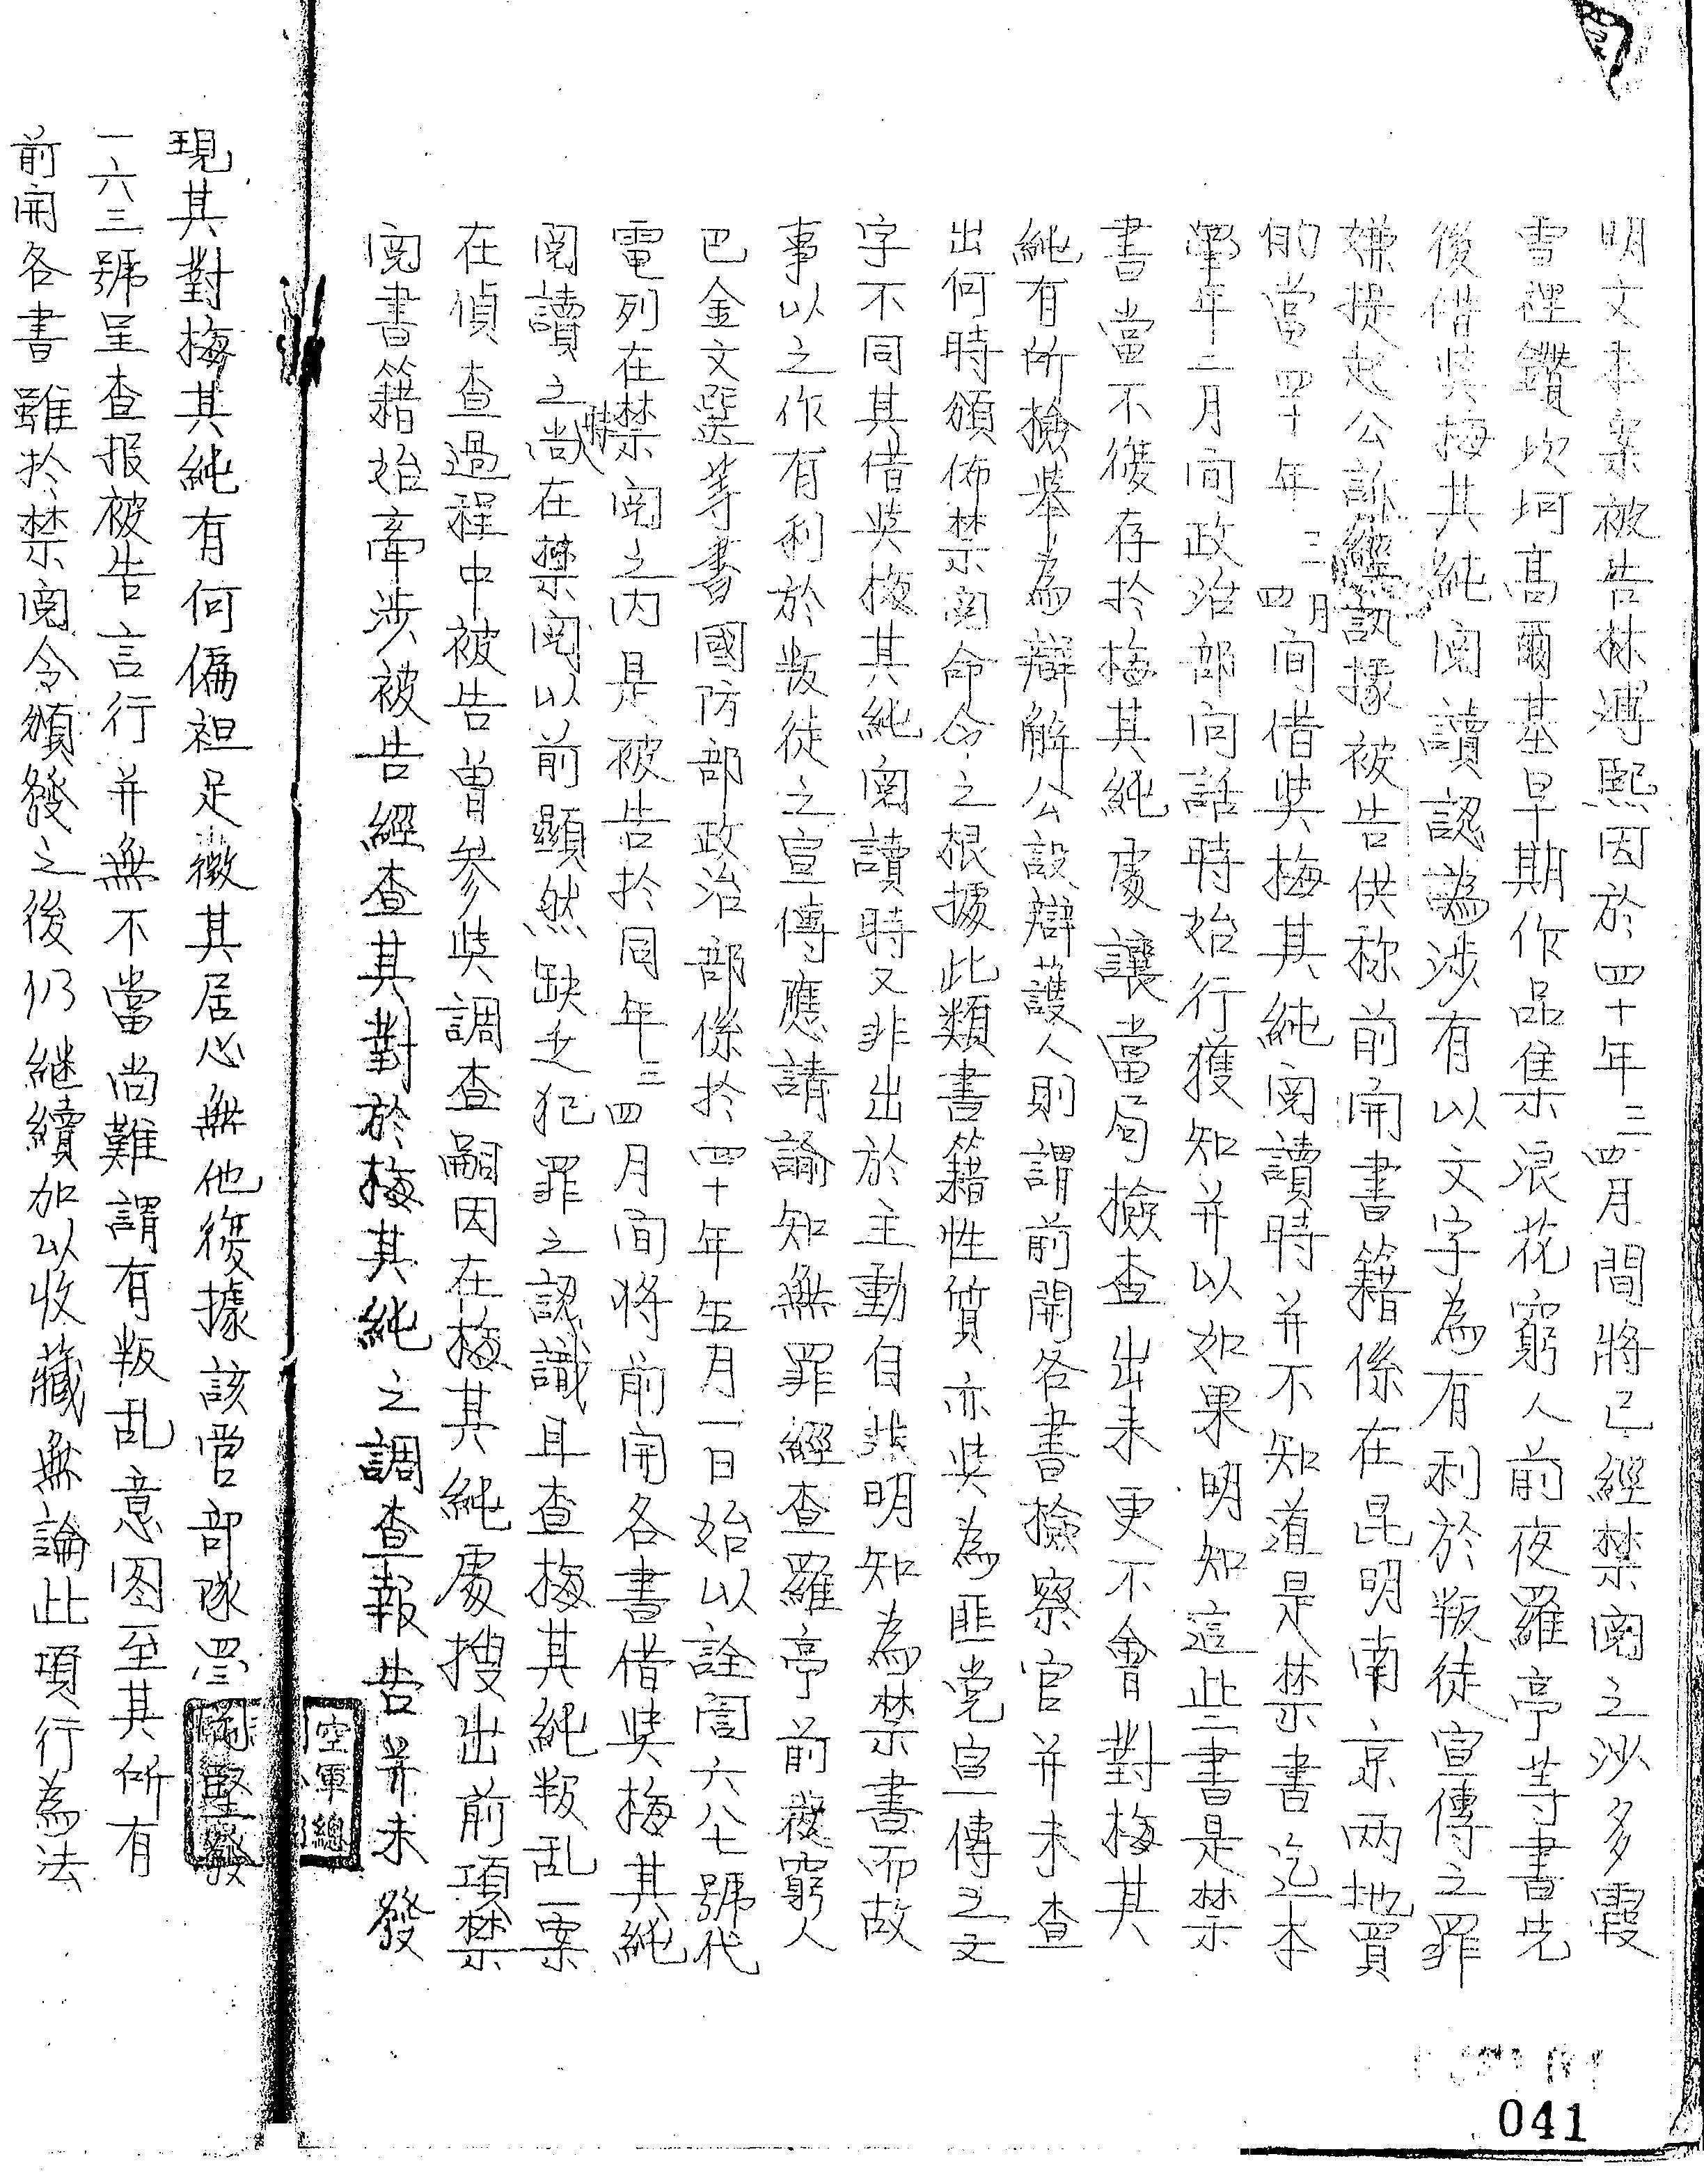 明文本案被告林溥熙因於四十年三四月間將已經禁閱之沙多霞
雪裡鑽坎坷高爾基早期作品集浪花窮人前夜羅亭等書先
後借與梅其純閱讀認為涉有以文字為有利於叛徒宣傳之罪
嫌提起公訴經訊據被告供称前開書籍係在昆明南京兩地買
的當四十年三四月間借與梅其純閱讀時并不知道是禁書迄本
年二月間政治部向話時始行獲知并以如果明知這些書是禁
書當不復存於梅其純處讓當局檢查出來更不會對梅其
純有所檢舉為辯解公設辯護人則謂前開各書檢察官并未查
出何時頒佈禁閱命令之根據此類書籍性質亦與為匪党宣傳之文
字不同其借與梅其純閱讀時又非出於主動自非明知為禁書而故
事以之作有利於叛徒之宣傳應請諭知無罪經查羅亭前夜窮人
巴金文選等書國防部政治部係於四十年五月一日始以詮誾六八七號代
電列在禁閱之內是被告於同年三四月間將前開各書借與梅其純
閱讀之時尚在禁閱以前顯然缺乏犯罪之認識且查梅其純叛乱一案
在偵查過程中被告曾參與調查嗣因在梅其純處搜出前項禁
閱書籍始牽涉被告經查其對於梅其純之調查報告并未發
現其對梅其純有何偏袒足徵其居心無他復據該管部隊
一六三號呈查报被告言行并無不當尚難謂有叛乱意图至其所有
前開各書雖於禁閱令頒發之後仍継續加以收藏無論此項行為法
空軍總
041